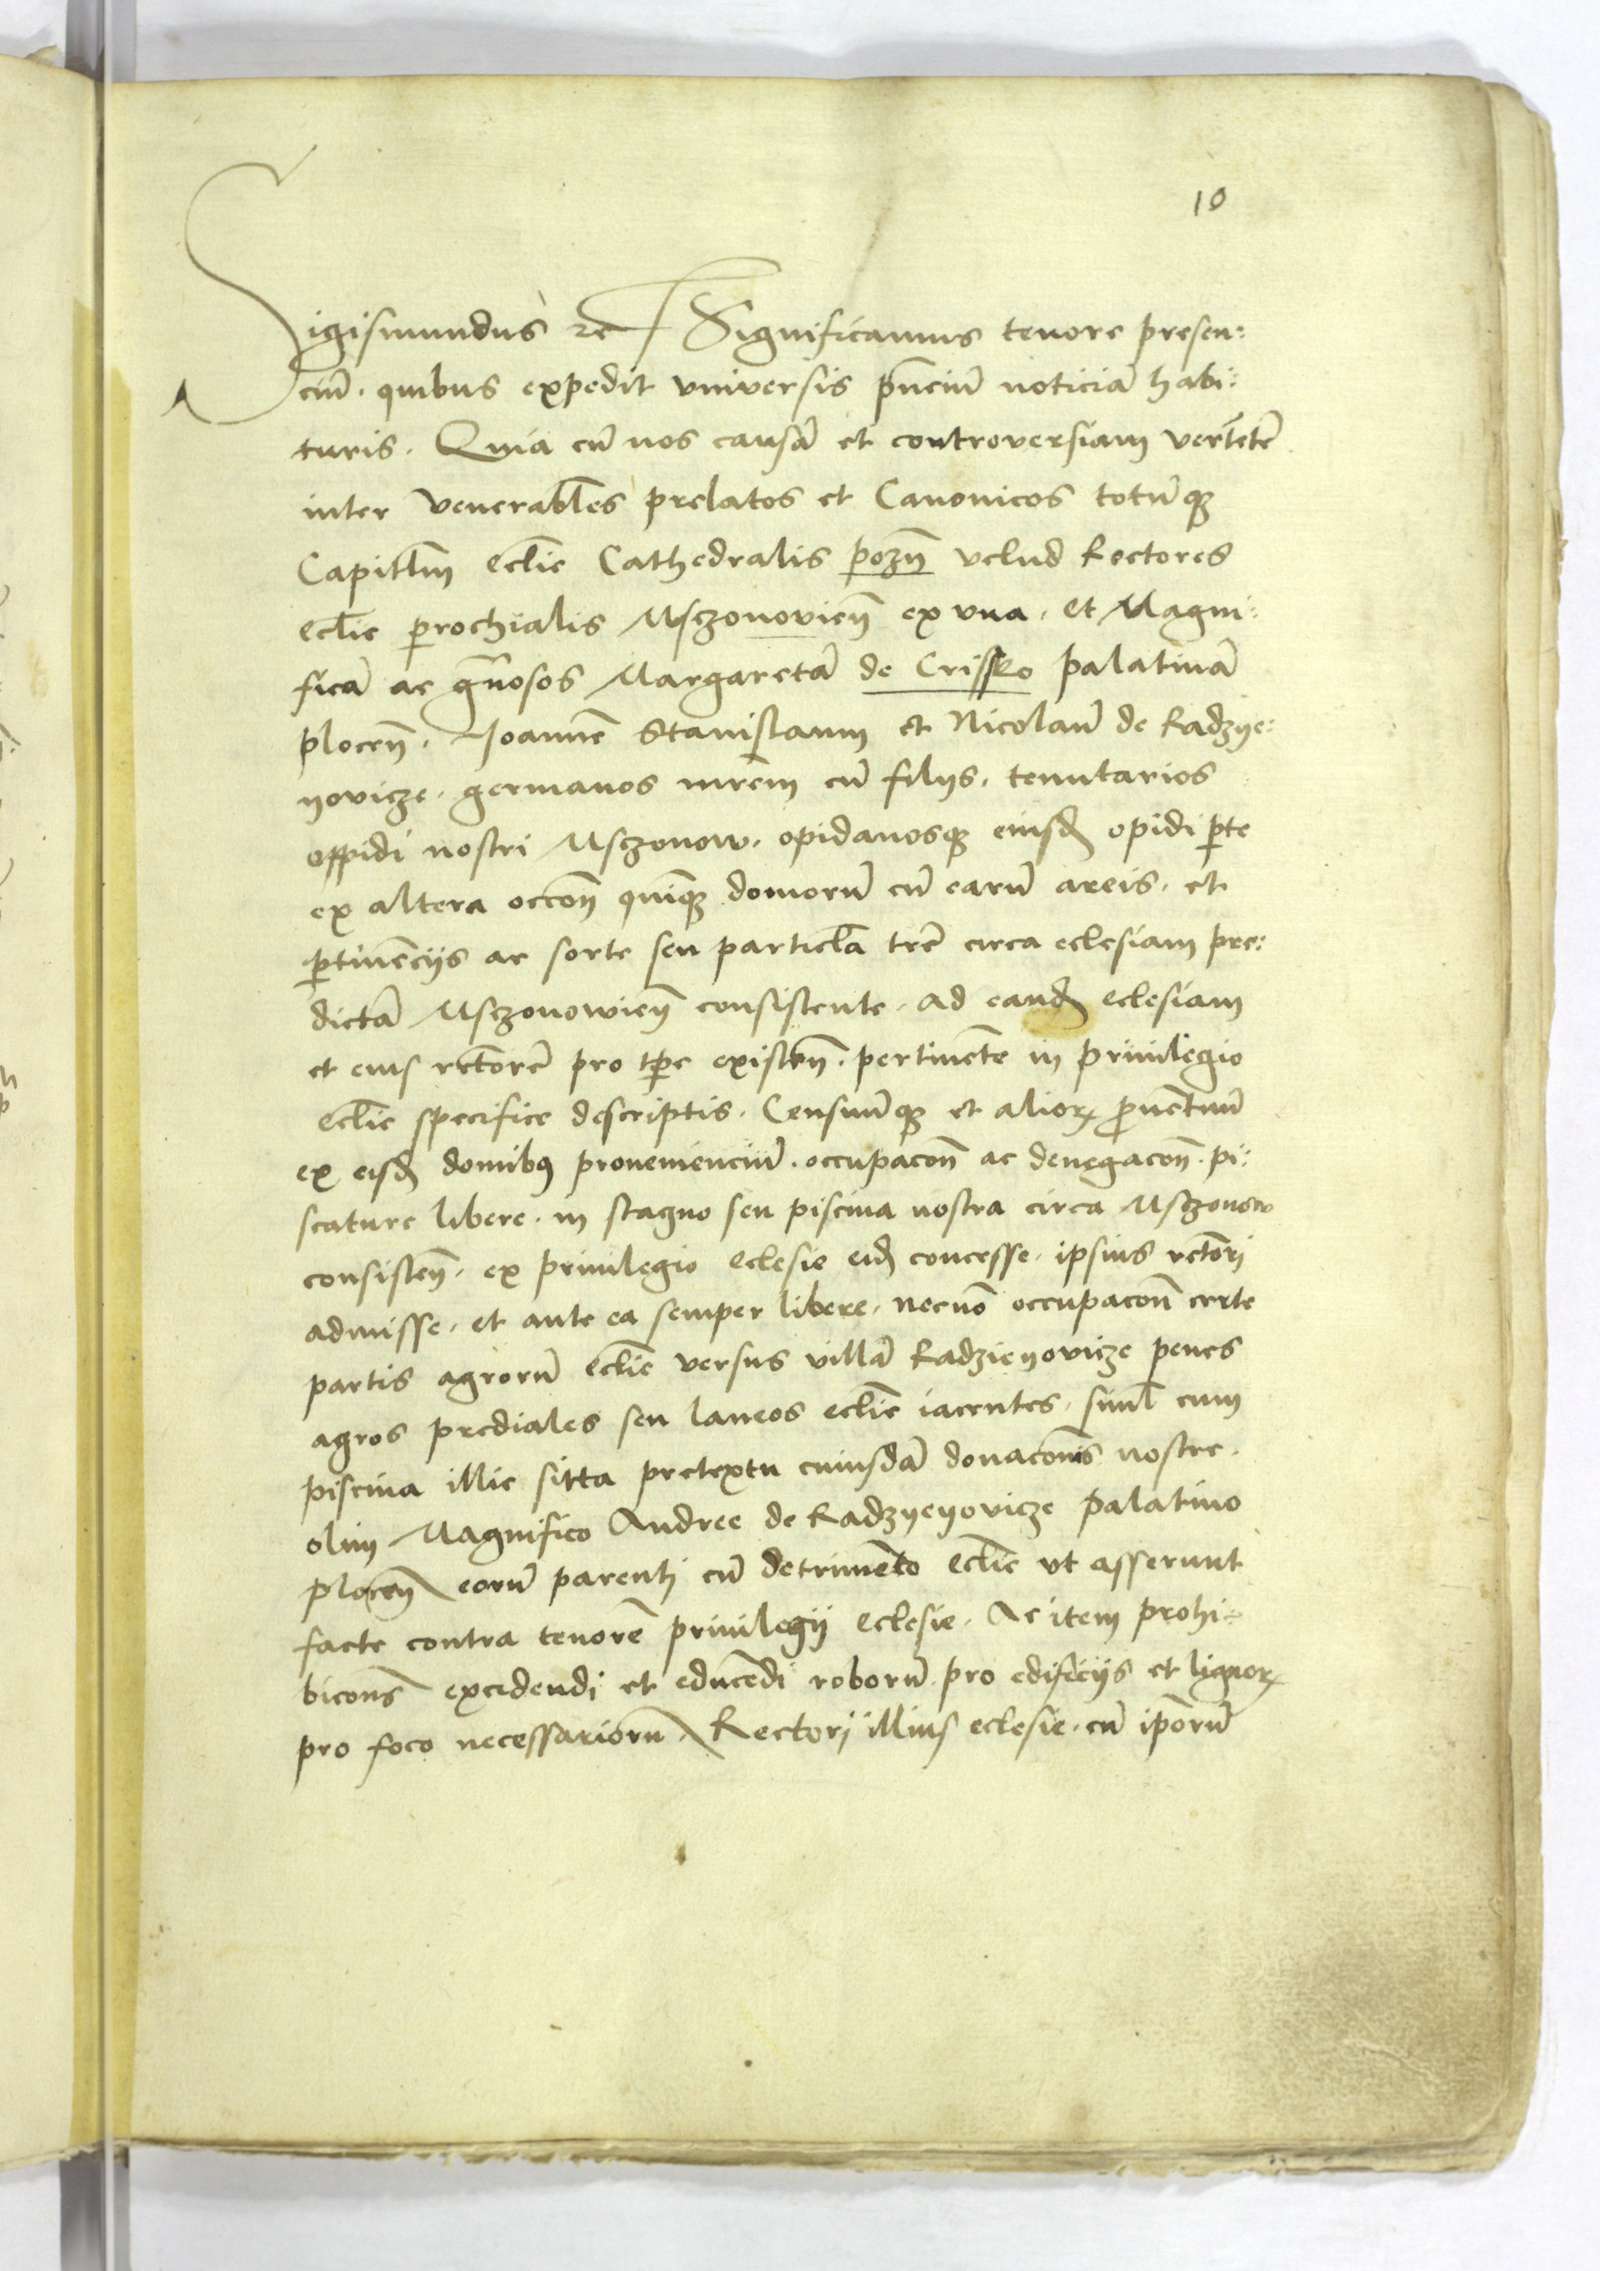 10
Sigismundus etc Significamus tenore presen:
ciū. quibus expedit vniversis pn̄ciū noticiā habi:
turis. Quia cū nos causā et controversiam vertētē
inter venerabl̄es prelatos et Canonicos totūqꝫ
Capitl̄m eccl̄ie Cathedralis pozn̄ velud Rectores
ecl̄ie ꝑrochialis Msczonovien̄ ex vna. et Magni:
ficā ac gn̄osos Margaretā de Crissko palatinā
plocen̄. Joannē Stanislaum et Nicolaū de Radzye:
yovicze. germanos mr̄em cū filijs. tenutarios
oppidi nostri Msczonow. opidanosqꝫ eiusd̄ opidi ꝑte
ex altera occōn̄ quīqꝫ domorū cū earū areis. et
ꝑtinēcijs ac sorte seu particl̄a trē circa eclesiam pre:
dictā Msczonowien̄ consistente. ad eand̄ eclesiam
et eius rctōrē pro tꝑe existen̄. pertinēte in priuilegio
ecl̄ie specifice descriptis. Censuūqꝫ et alioꝝ ꝓuētuū
ex eisd̄ domibꝰ proveniencium̄. occupacōn̄ ac denegacōn̄. pi:
scature libere. in stagno seu piscina nostra circa Msczonow
consisten̄. ex priuilegio eclesie eid̄ concesse. ipsius rctōri
admisse. et ante ea semper libere. necnō occupacōn̄ certe
partis agrorū ecl̄ie versus villā Radzieyovicze penes
agros prediales seu laneos ecl̄ie iacentes. siml̄ cum
piscina illic sitta pretextu cuiusdā donacōnis nostre.
olim Magnifico Andree de Radzyeyovicze palatino
plocen̄ eorū parenti cū detrimēto ecl̄ie vt asserunt
facte contra tenorē priuilegij eclesie. Ac item prohi:
bicōn̄s excidendi et educēdi roborū pro edificijs et lignoꝝ
pro foco necessariorū. Rectorj illius eclesie. cū ip̄orū